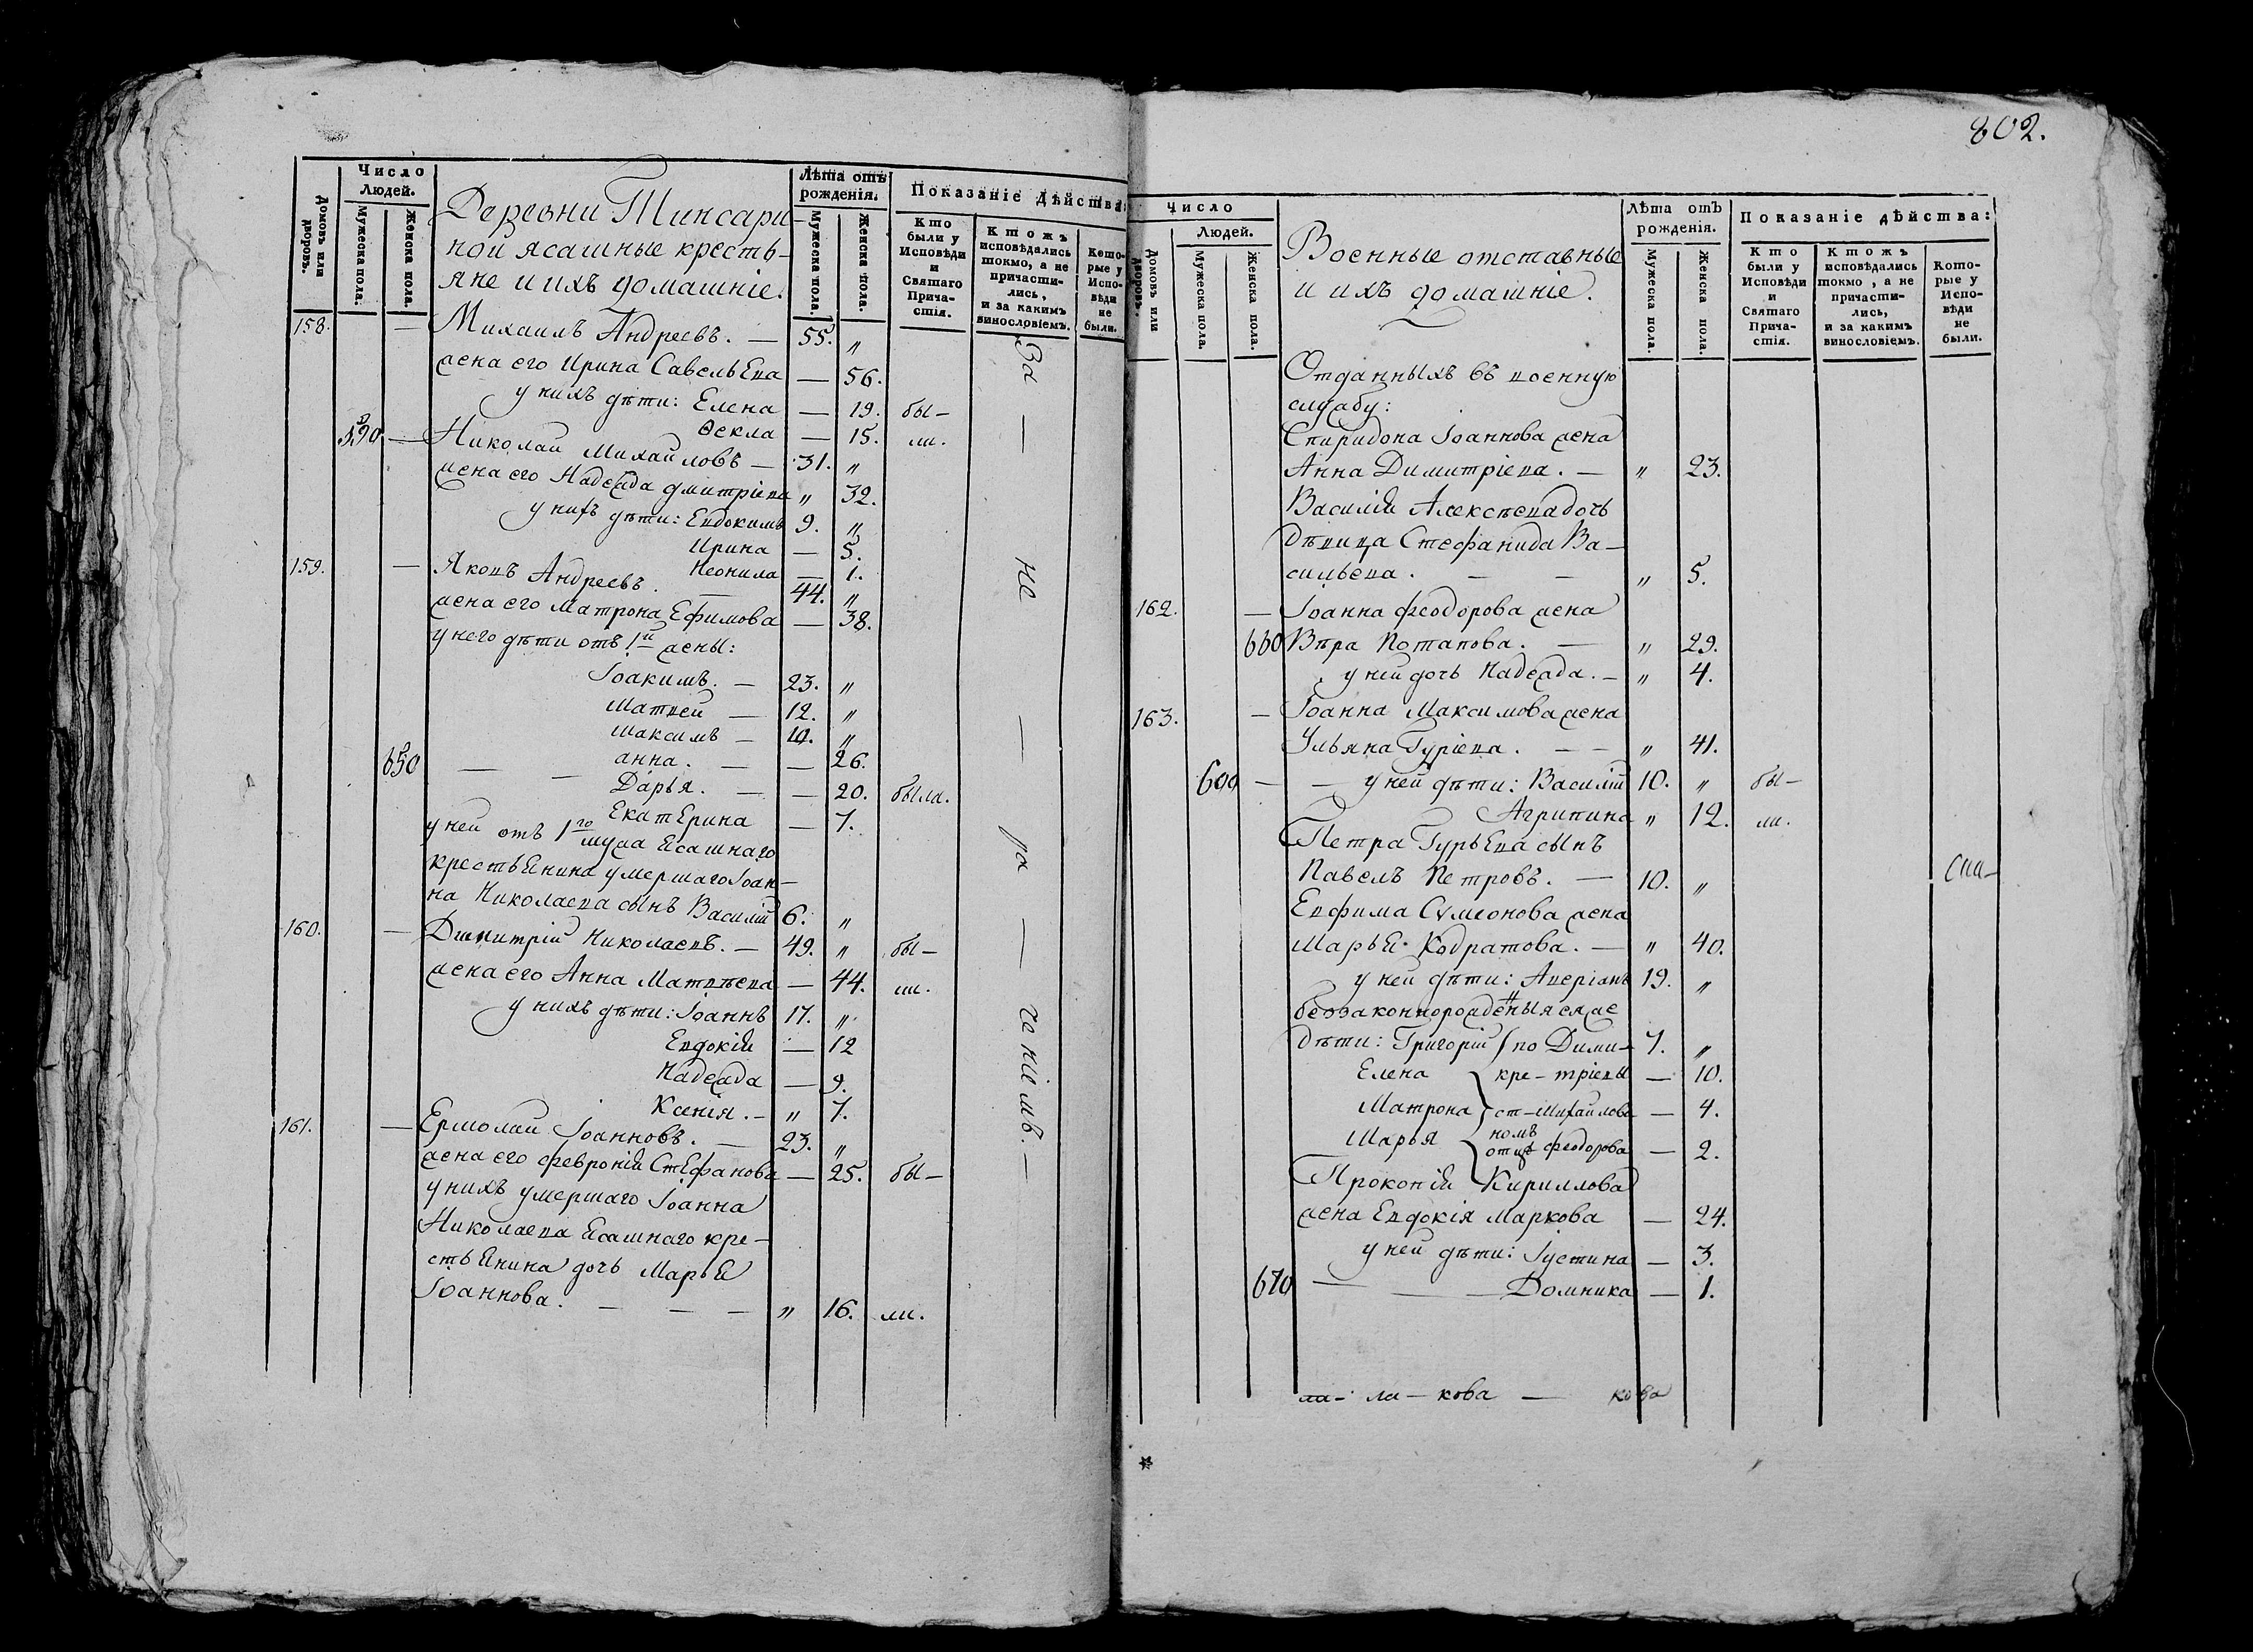 Число
Людей.
Домовъ или дворовъ.
Мужеска пола.
Женска пола.
Деревни Тинсари-
ной ясашные кресть-
яне и ихъ домашніе.
Лѣта отъ рожденія.
Мужеска пола.
Женска пола.
Показаніе дѣйства:
Кто были у Исповѣди и Святаго Прича- стія.
Ктожъ исповѣдались токмо, а не причасти- лись, и за какимъ винословіемъ.
Кото- рые у Испо- вѣди не были.
158. — Михаилъ Андреевъ. — 55. „
жена его Ирина Савельева — 56.
у нихъ дѣти: Елена — 19. бы-
Ѳекла — 15. ли.
590 — Николай Михайловъ — 31. „
жена его Надежда Дмитріева „ 32.
у нихъ дѣти: Евдокимъ 9. „
Ирина — 5.
Неонила — 1.
159. — Яковъ Андреевъ. — 44. „
жена его Матрона Ефимова — 38.
у него дѣти отъ 1й жены:
Іоакимъ. — 23. „
Матвей — 12. „
Максимъ — 10. „
650 — — анна. — — 26.
Дарья. — — 20. была.
Екатерина — 7.
у ней отъ 1го мужа ясашнаго
крестьянина умершаго Іоан-
на Николаева сынъ Василій 6. „
160. — Димитрій Николаевъ. — 49. „ бы-
жена его Анна Матвѣева — 44. ли.
у нихъ дѣти: Іоаннъ 17. „
Евдокія — 12
Надежда — 9.
Ксенія. — „ 7.
161. — Ермолай Іоанновъ. — 23. „
жена его Февронія Стефанова — 25. бы-
у нихъ умершаго Іоанна
Николаева ясашнаго кре-
стьянина дочь Марья
Іоаннова. — — — „ 16. ли.
За — не — ра — ченіемъ. —
802.
Число
Людей.
Домовъ или дворовъ.
Мужеска пола.
Женска пола.
Военные отставные
и ихъ домашніе.
Лѣта отъ рожденія.
Мужеска пола.
Женска пола.
Показаніе дѣйства:
Кто были у Исповѣди и Святаго Прича- стія.
Ктожъ исповѣдались токмо, а не причасти- лись, и за какимъ винословіемъ.
Кото- рые у Испо- вѣди не были.
Отданныхъ въ военную
службу:
Спиридона Іоаннова жена
Анна Димитріева. — „ 23.
Василія Алексѣева дочь
Дѣвица Стефанида Ва-
сильева. — — „ 5.
162. — Іоанна Феодорова жена
660 Вѣра Потапова. — „ 29.
у ней дочь Надежда. — „ 4.
163. — Іоанна Максимова жена
Ульяна Гуріева. — — „ 41.
600 — — у ней дѣти: Василій 10. „ бы-
Агрипина „ 12. ли.
Петра Гурьева сынъ
Павелъ Петровъ. — 10. „
Евфима Сѵмеонова жена
Марья Кодратова. — „ 40.
у ней дѣти: Аверіянъ 19. „
беззаконнорожденныя ея же
дѣти: Григорій по Дими- 7. „
Елена кре- тріевы — 10.
Матрона ст- Михайлова — 4.
Марья номъ отцѣ Феодорова — 2.
Прокопія Кириллова
жена Евдокія Маркова — 24.
у ней дѣти: Іустина — 3.
670 — — — Домника — 1.
ли- ла- кова — кова